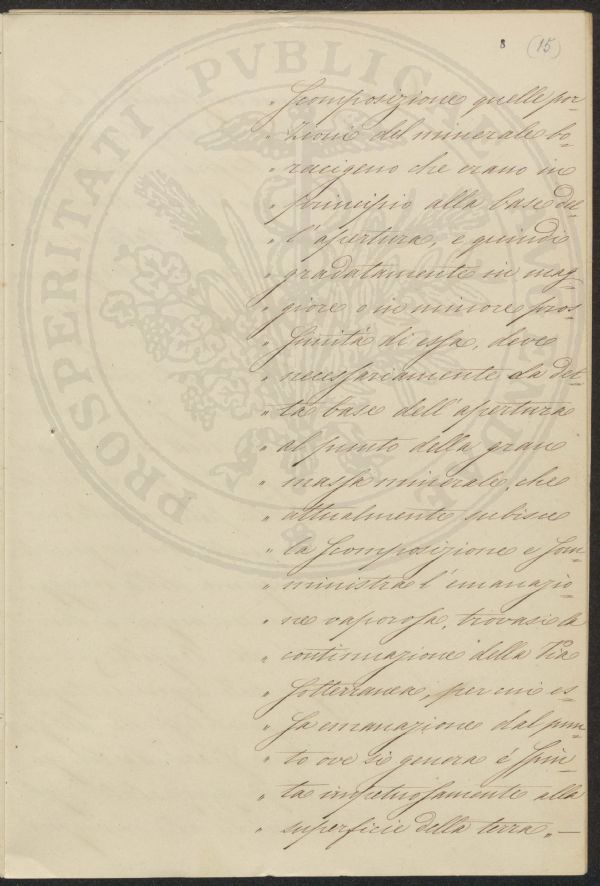 8 (15)
PROSPERITATI PVBLICAE AVGENDAE
„ scomposizione quelle por-
„ zioni del minerale bo-
„ racigeno che erano in
„ principio alla base del-
„ l'apertura, e quindi
„ gradatamente in mag-
„ giore o in minore pros-
„ simità di essa, deve
„ necessariamente da det-
„ ta base dell'apertura
„ al punto della gran
„ massa minerale, che
„ attualmente subisce
„ la scomposizione e som-
„ ministra l'emanazio-
„ ne vaporosa, trovasi la
„ continuazione della via
„ sotterranea, per cui es-
„ sa emanazione dal pun-
„ to ove si genera é spin-
„ ta impetuosamente alla
„ superficie della terra„ —